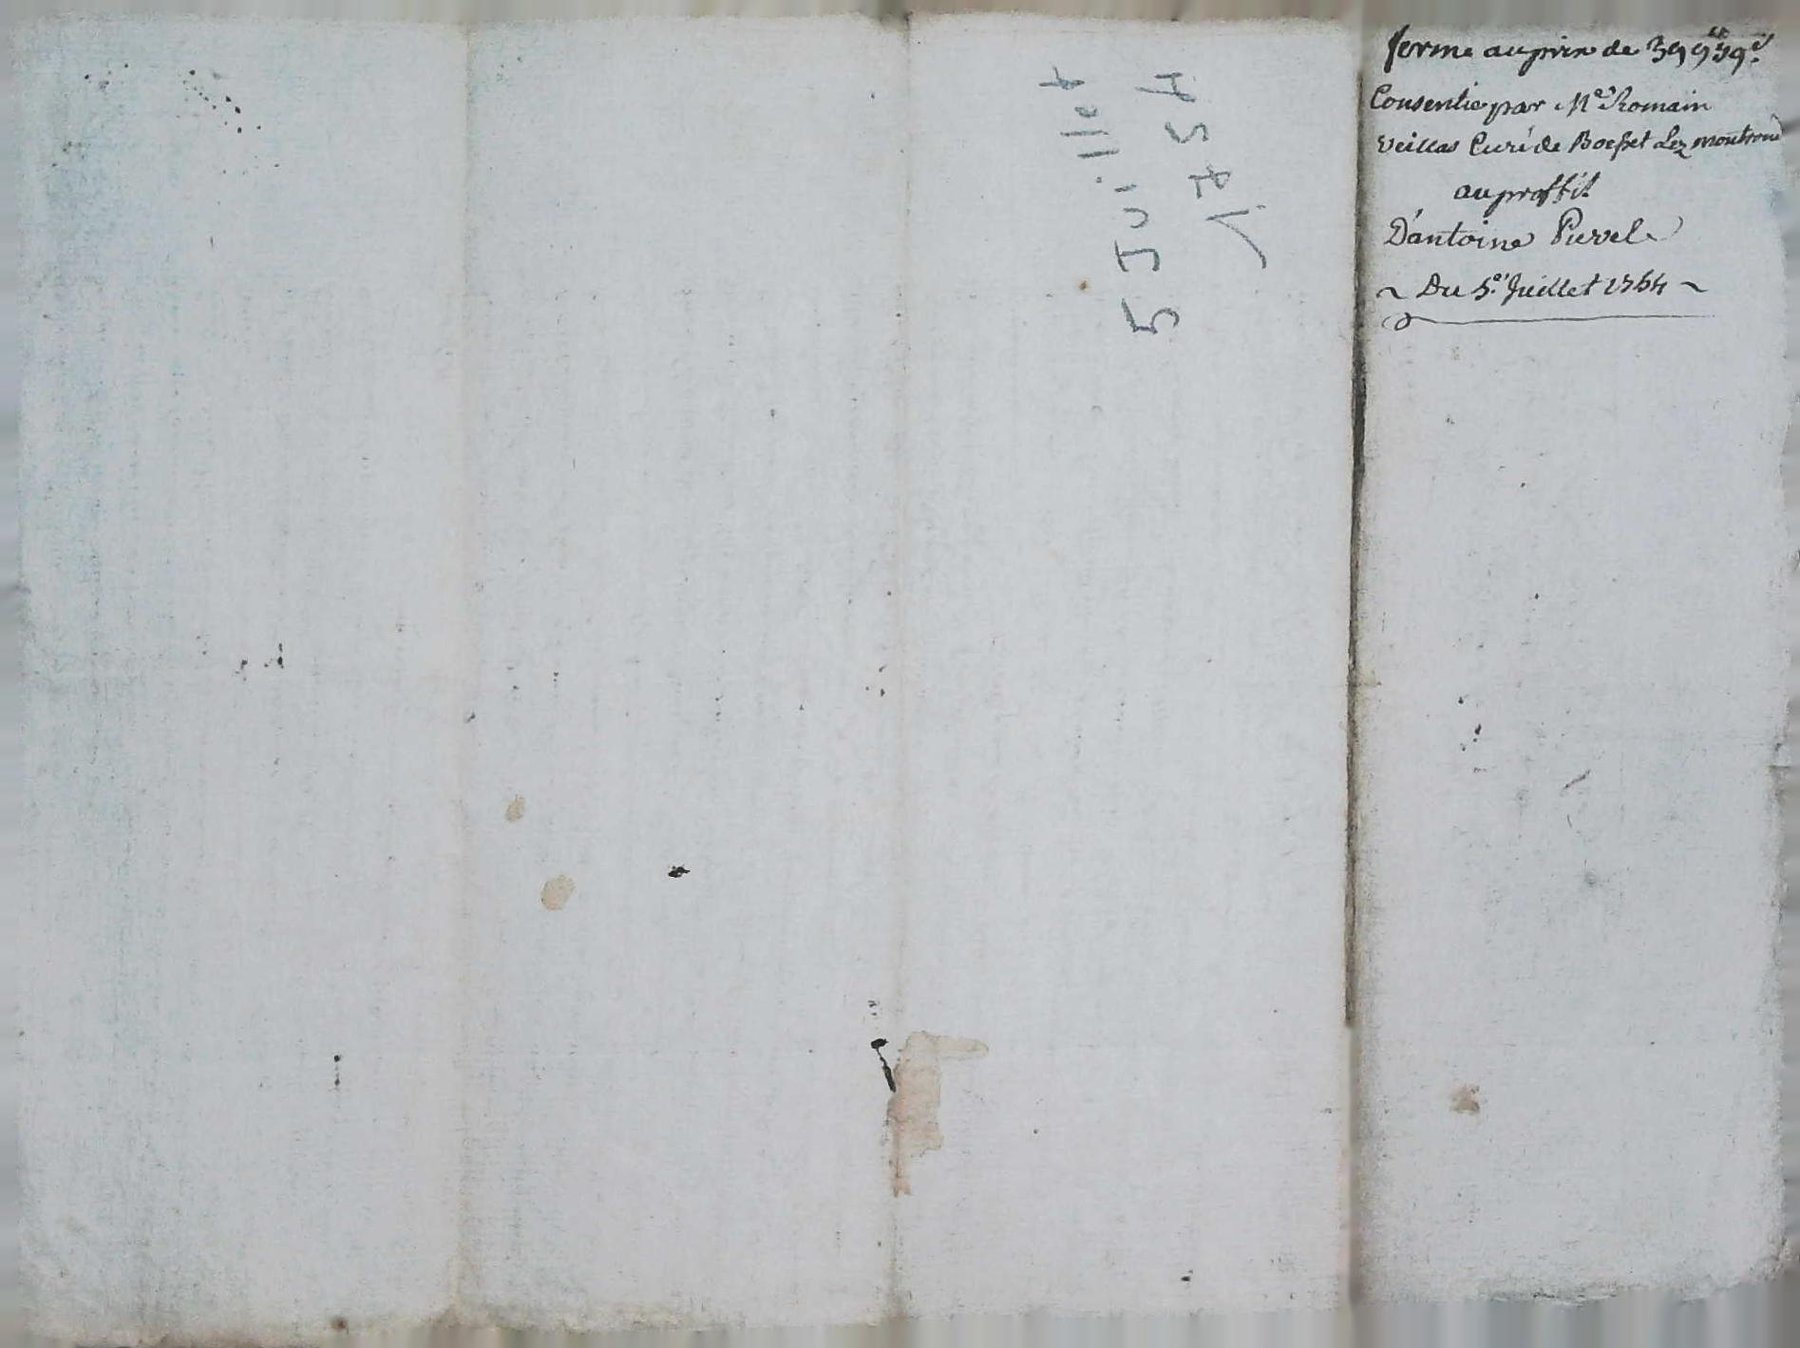 ferme au prix de 399lt 19s.
Consentie par Me Romain
Veillas Curé de Boesset Lez montrond
au proffit
D'antoine Pierel
~ Du 5e Juillet 1754 ~
5 Juillet
1754